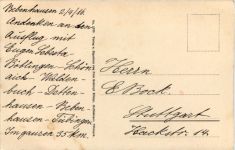 Bebenhausen 2/4/16.
Andenken an den
Ausflug mit
Eugen
Böblingen - Schön-
aich - Walden-
buch - Detten-
hausen - Beben-
hausen - Tübingen
Im ganzen 35 Km.
Herrn
E. Bock.
Stuttgart
Hackstr. 14.